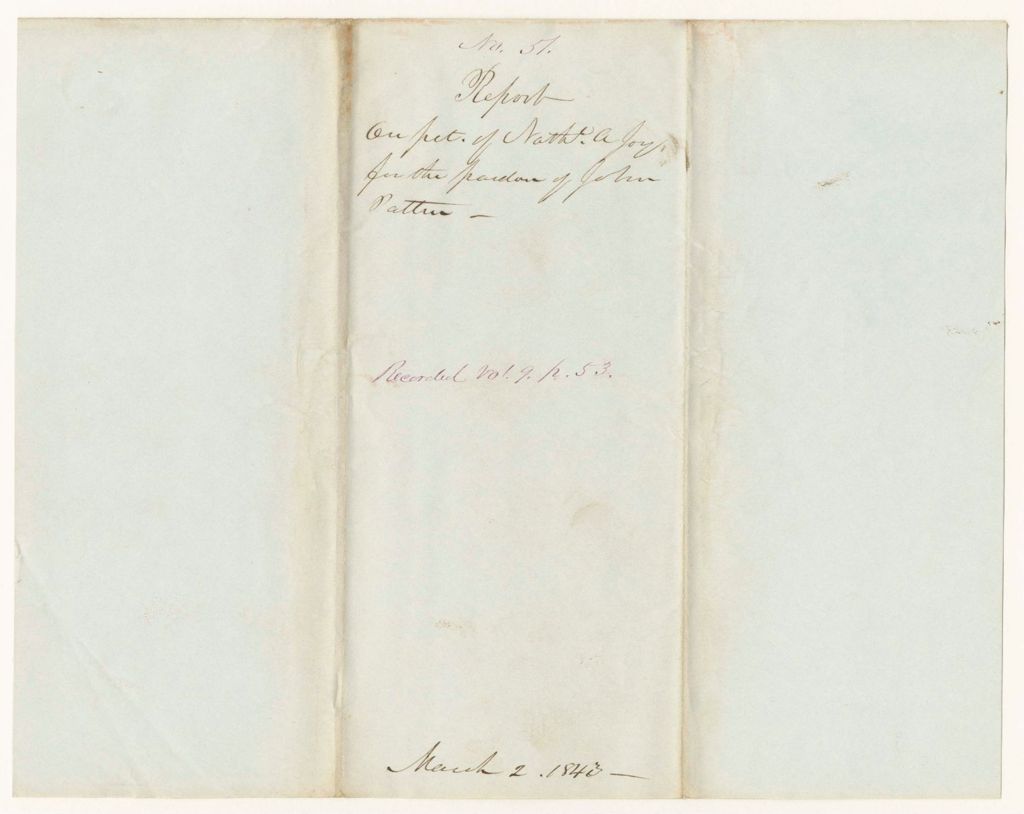 No. 51.
Report
On pet. of Nathl. A Joy,
for the pardon of John
Patten —
Recorded Vol. 9. p. 53.
March 2. 1843 —